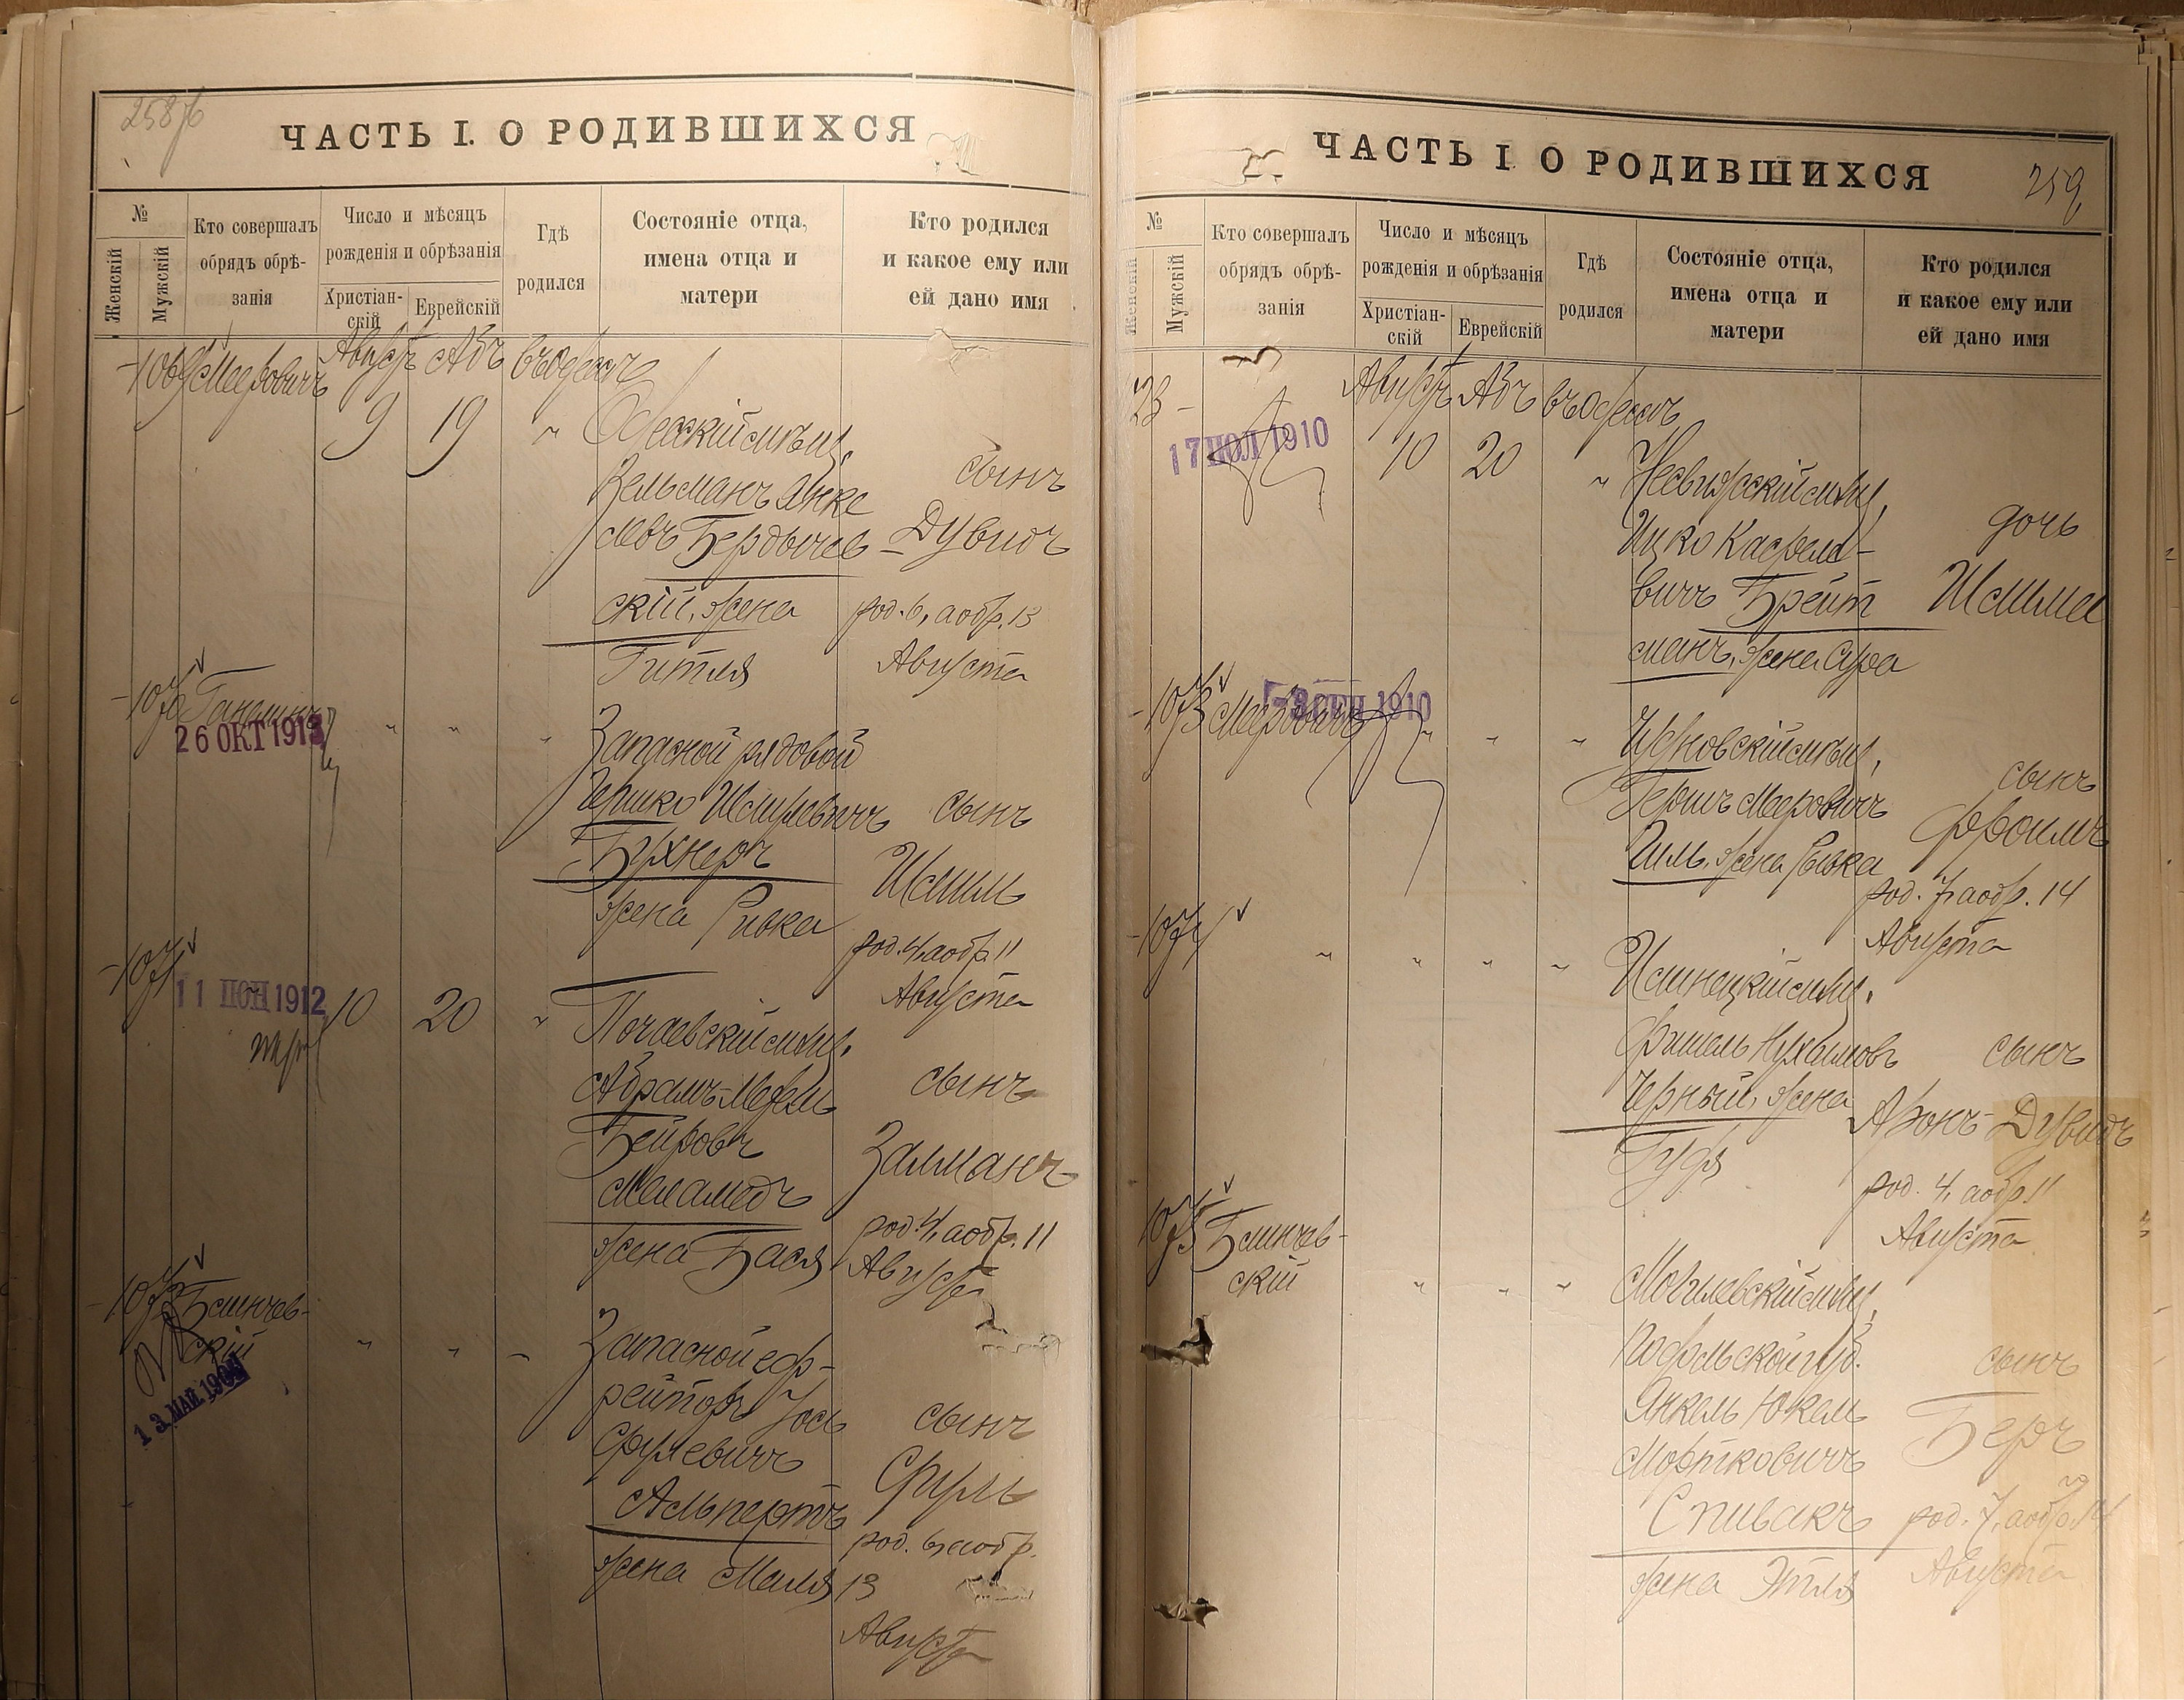 258 об
ЧАСТЬ I. О РОДИВШИХСЯ
№
Женскій
Мужскій
Кто совершалъ
обрядъ обрѣ-
занія
Число и мѣсяцъ
рожденія и обрѣзанія
Христіан-
скій
Еврейскій
Гдѣ
родился
Состояніе отца,
имена отца и
матери
Кто родился
и какое ему или
ей дано имя
1069 Меерович Августъ Абъ въ Одессѣ
9 19 " Одесскій мѣщ.
Зельманъ Янке
левъ Бердичев
скій, жена
Гитля
сынъ
Дувидъ
род. 6, а обр. 13
Августа
1070
26 ОКТ 1913
" " " Запасной рядовой
Гершко Шмулевичъ
Бухнеръ
жена Ривка
сынъ
Шмиль
род. 4, а обр. 11
Августа
1071
11 ІЮН 1912
10 20 " Почаевскій мѣщ.
Абрамъ-
Беировъ
Меламедъ
жена Бася
сынъ
Залманъ
род. 4, а обр. 11
Августа
1072 Блинчев-
скій
13 МАЙ
" " - Запасной еф-
рейторъ Іось
Срулевичъ
Альпертъ
жена Маля
сынъ
Сруль
род. 6, а обр.
13
Августа
259
ЧАСТЬ I О РОДИВШИХСЯ
№
Женскій
Мужскій
Кто совершалъ
обрядъ обрѣ-
занія
Число и мѣсяцъ
рожденія и обрѣзанія
Христіан-
скій
Еврейскій
Гдѣ
родился
Состояніе отца,
имена отца и
матери
Кто родился
и какое ему или
ей дано имя
Августъ Абъ въ Одессѣ
17 ІЮЛ 1910
10 20 " Несвижскій мѣщ.
Ицко
вичъ Брейт
манъ, жена Сура
дочь
1073 Мееровичъ
-3 СЕН 1910
" " " Чудновскій мѣщ.
Гершъ Мееровичъ
жена Ривка
сынъ
Фроимъ
род. 7, а обр. 14
Августа
1074
" " " " Илинецкій мѣщ.
Фишель Нухимовъ
Черный, жена
сынъ
Аронъ-Дувидъ
род. 4, а обр. 11
Августа
1075 Блинчев-
скій
" " " Могилевскій мѣщ.
Подольской губ.
Янкель Юкель
Мортковичъ
Спивакъ
жена Этля
сынъ
Беръ
род. 7, а обр. 14
Августа